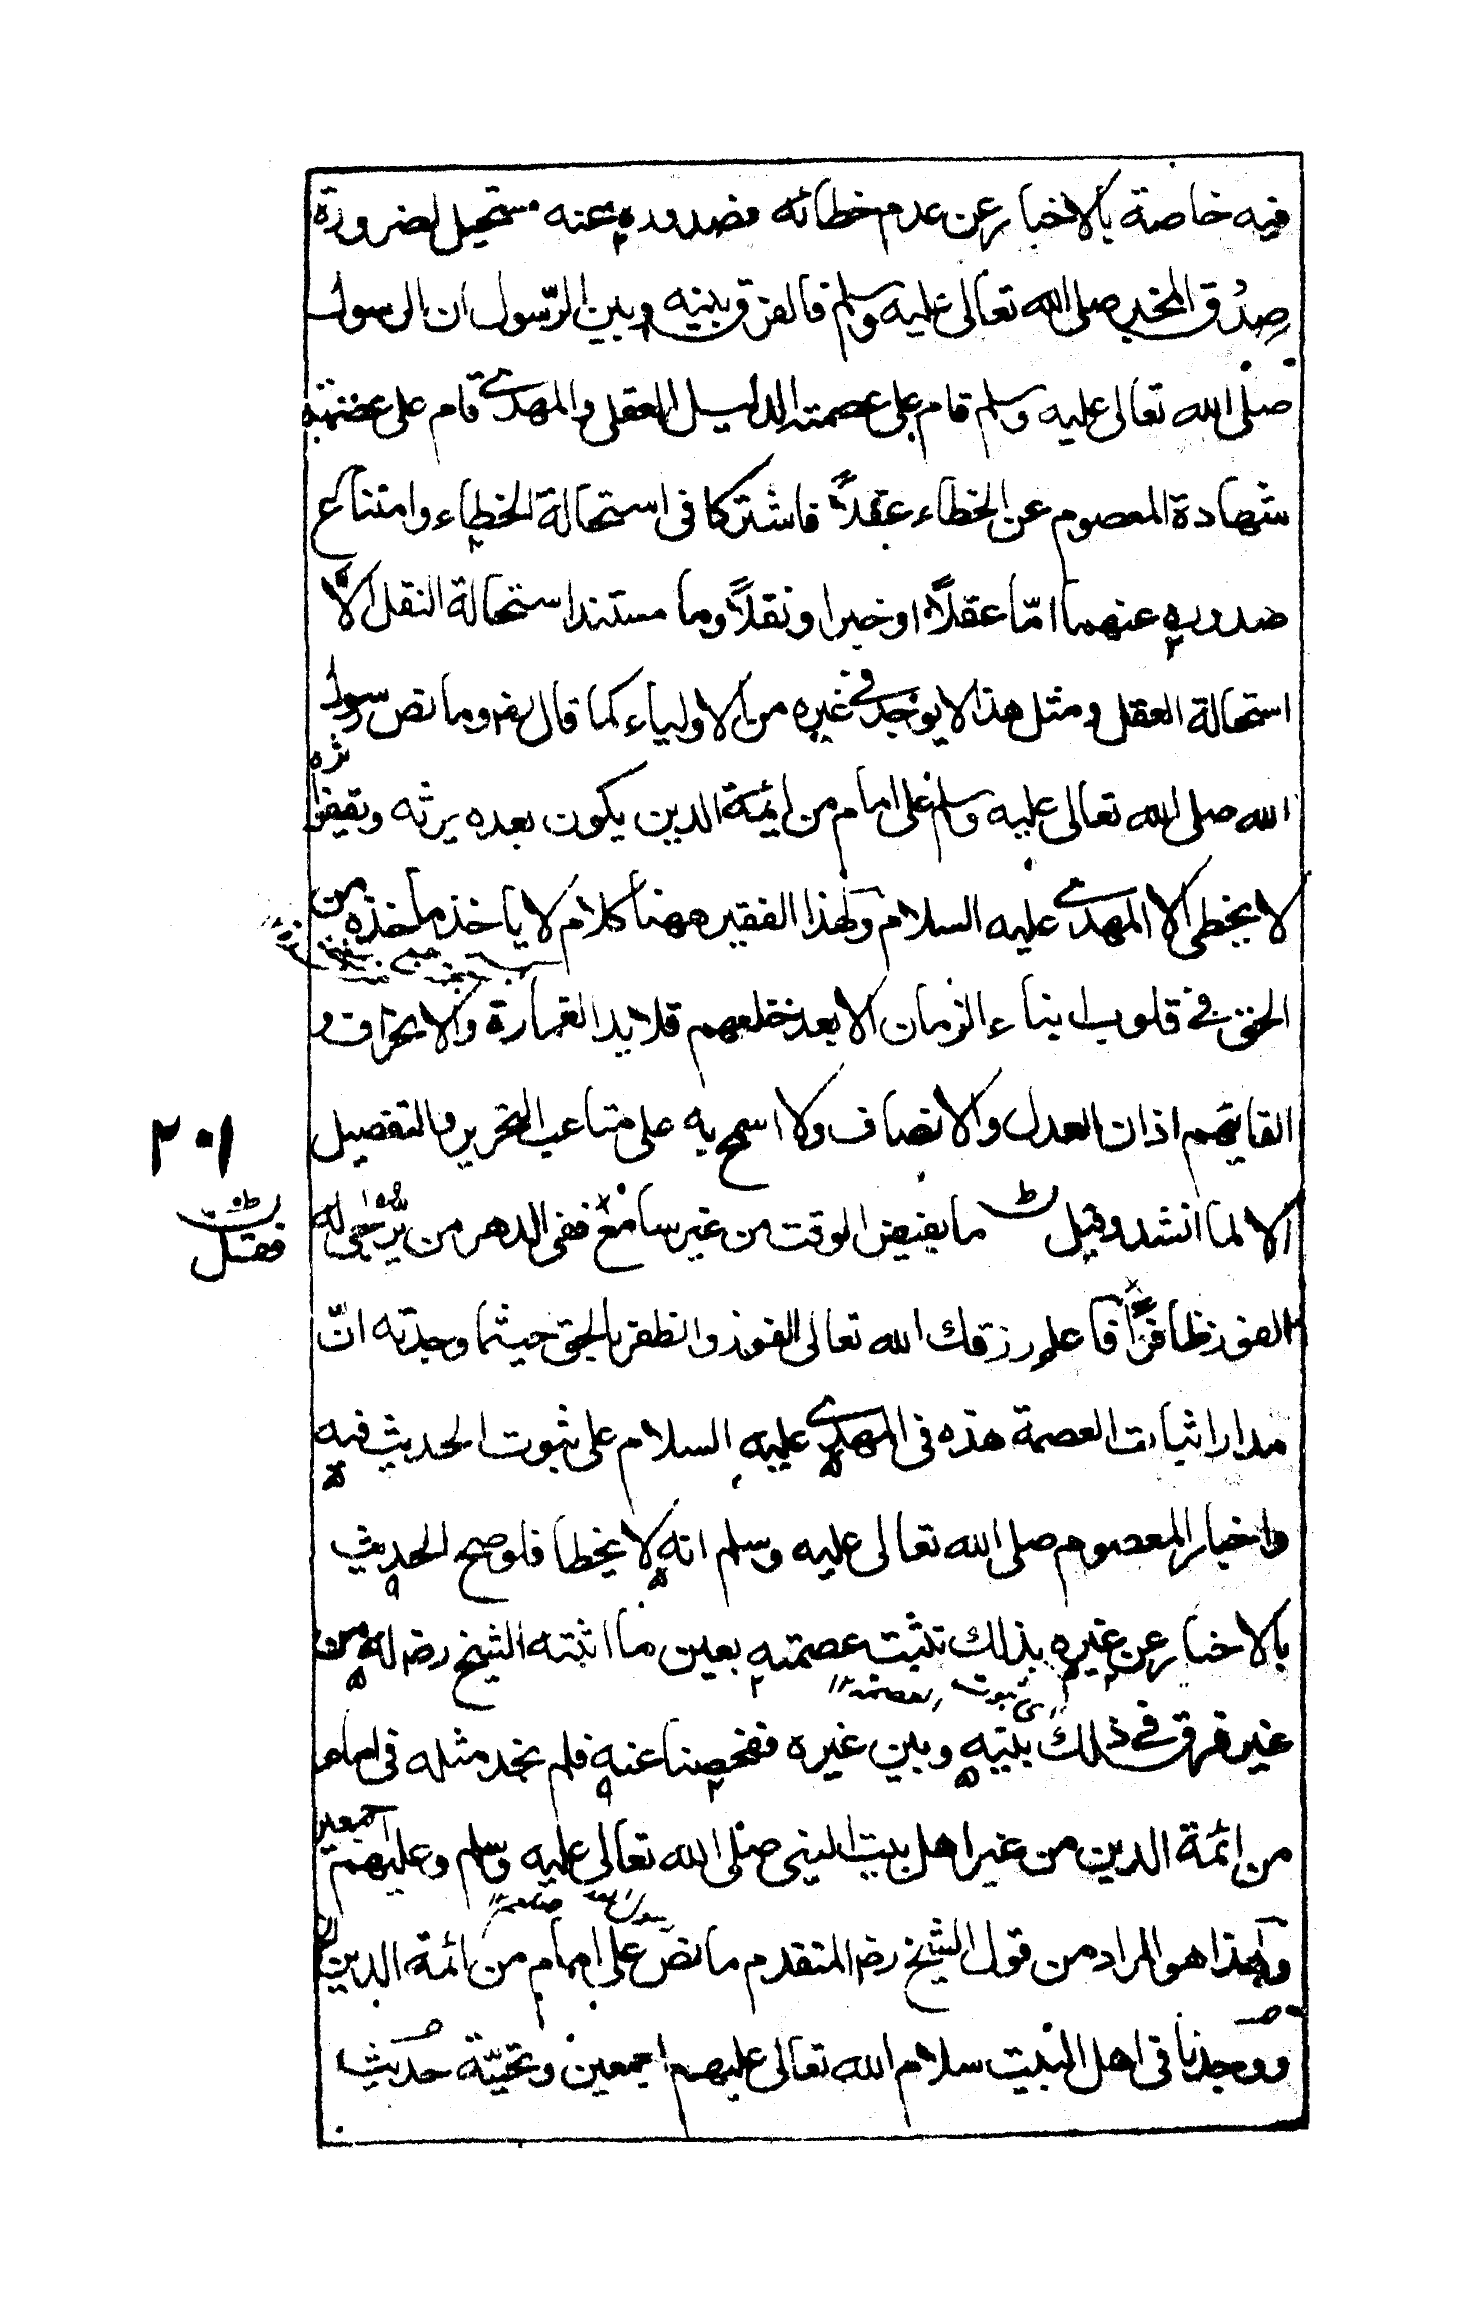 فيه خاصة بالاخبار عن عدم خطائه فصدوره عنه مستحيل لضرورة
صدق المخبر صلى الله تعالى عليه وسلم فالفرق بينه وبين الرسول ان الرسول
صلى الله تعالى عليه وسلم قام على عصمته الدليل العقلى والمهدى قام على عصمته
شهادة المعصوم عن الخطاء عقلاً فاشتركا فى استحالة الخطاء وامتناع
صدوره عنهما امّا عقلاً او خبرا ونقلاً وما مستند استحالة النقل الا
استحالة العقل ومثل هذا لا يوجد فى غيره من الاولياء كما قال رضه وما نص رسول
الله صلى الله تعالى عليه وسلم على امام من ائمة الدين يكون بعده يرثه ويقفوا اثره
لا يخطى الا المهدى عليه السلام ولهذا الفقير ههنا كلام لا ياخذ ماخذه من
الحق فى قلوب ابناء الزمان الا بعد خلعهم قلايد الغمارة والانحراف و
القايهم اذان العدل والانصاف ولا اسمح به على متاعب التحرير والتفصيل
الا لما انشد وقيل ما يفيض الوقت من غير سامع ففى الدهر من يرتجى له
الفوز ظافراً فاعلم رزقك الله تعالى الفوز والظفر بالحق حيثما وجدته انّ
مدار اثبات العصمة هذه فى المهدى عليه السلام على ثبوت الحديث فيه
واخبار المعصوم صلى الله تعالى عليه وسلم انه لا يخطا فلو صح الحديث
بالاخبار عن غيره بذلك تثبت عصمته بعين ما اثبته الشيخ رضه له من
اى ثبوت العصمة
غير فرق فى ذلك بينه وبين غيره ففحصنا عنه فلم نجد مثله فى امام
من ائمة الدين من غير اهل بيت النبى صلى الله تعالى عليه وسلم وعليهم اجمعين
رسول الله صلعم
وهذا هو المراد من قول الشيخ رضه المتقدم ما نص على امام من ائمة الدين
ووجدنا فى اهل البيت سلام الله تعالى عليهم اجمعين وتحيّة حديث
٢٠١
فقل